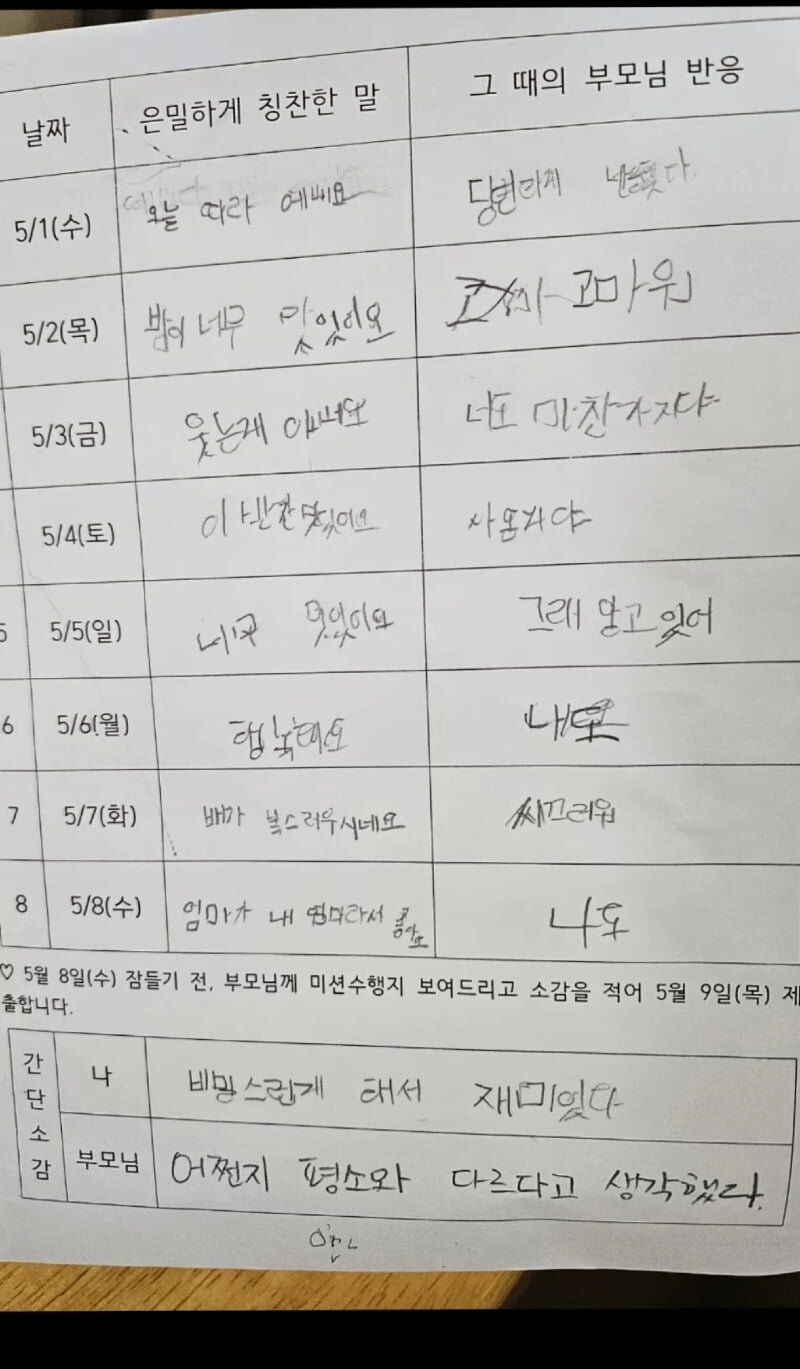 날짜 은밀하게 칭찬한 말 그 때의 부모님 반응
5/1(수) 오늘 따라 예뻐요
5/2(목) 밥이 너무 맛있어요 고마워
5/3(금) 웃는게 너도 마찬가지야
5/4(토) 이 반찬 맛있어요
5/5(일) 그래 알고 있어
6 5/6(월) 내도
7 5/7(화) 배가 복스러우시네요 씨끄러워
8 5/8(수) 엄마가 내 엄마라서 좋아요 나도
♡ 5월 8일(수) 잠들기 전, 부모님께 미션수행지 보여드리고 소감을 적어 5월 9일(목) 제
출합니다.
간단소감
나 비밍스런게 태서 재미있다
부모님 어쩐지 평소와 다르다고 생각했다.